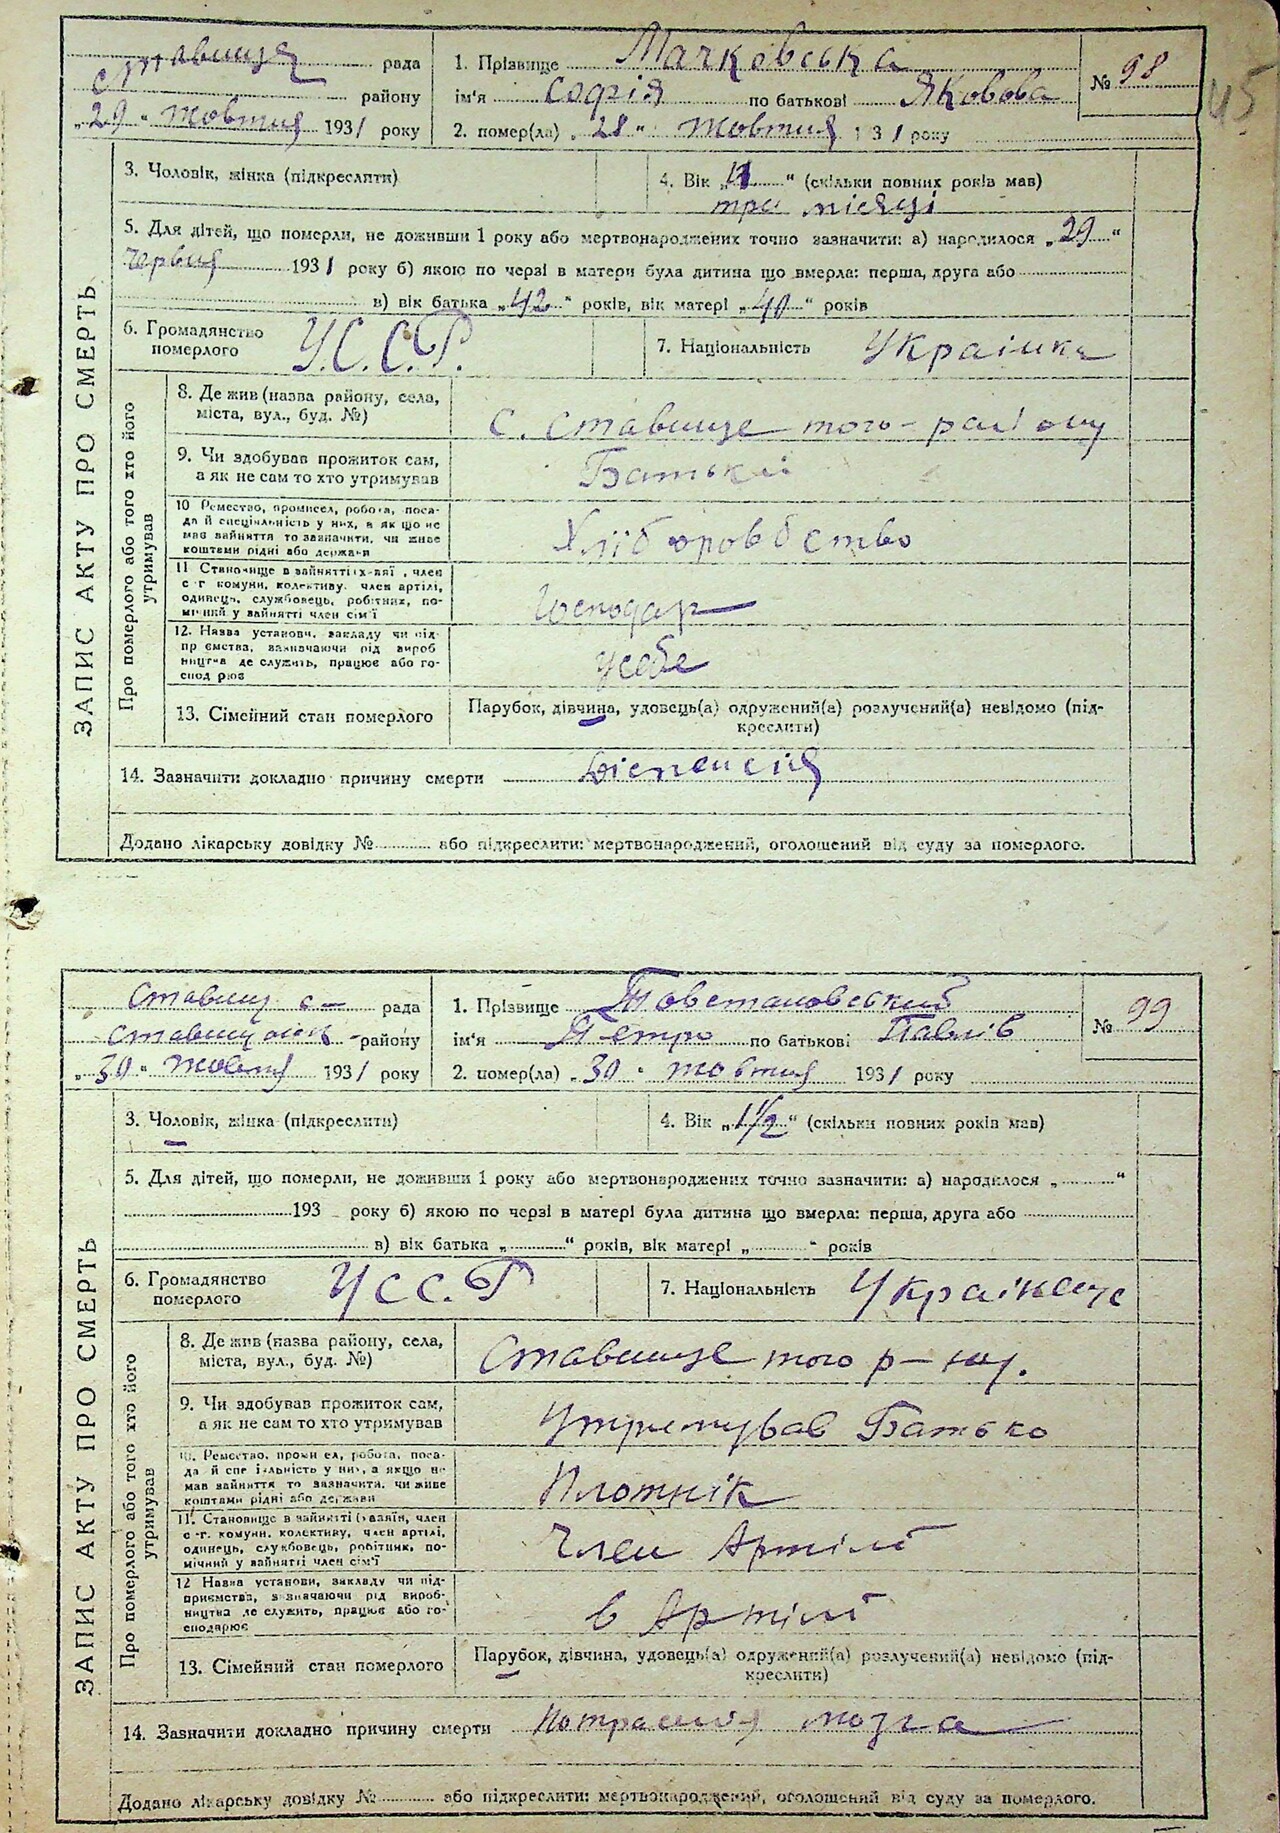 Ставище рада
району
„29“ жовтня 1931 року
1. Прізвище Мачковська
ім'я Софія по батькові Яковова
2. помер(ла) „28“ жовтня 131 року
№ 98
45
ЗАПИС АКТУ ПРО СМЕРТЬ
3. Чоловік, жінка (підкреслити)
4. Вік „ “ (скільки повних років мав)
три місяці
5. Для дітей, що померли, не доживши 1 року або мертвонароджених точно зазначити: а) народилося „29“
червня 1931 року б) якою по черзі в матери була дитина що вмерла: перша, друга або
в) вік батька „42“ років, вік матері „40“ років
6. Громадянство
померлого
У.С.С.Р.
7. Національність Украінка
Про померлого або того хто його
утримував
8. Де жив (назва району, села,
міста, вул., буд. №)
с. Ставище того-району
9. Чи здобував прожиток сам,
а як не сам то хто утримував
Батьки
10 Ремество, промисел, робота, поса-
да й спеціальність у них, а як що не
мав зайняття то зазначити, чи живе
коштами рідні або держави
Хліборобство
11 Становище в зайнятті (х-зяї, член
с-г комуни, колективу, член артілі,
одинець, службовець, робітник, по-
мічний у зайнятті член сім'ї
Господар
12. Назва установи, закладу чи під-
пр ємства, зазначаючи рід вироб
ництва де служить, працює або го-
спод рює
У себе
13. Сімейний стан померлого
Парубок, дівчина, удовець(а) одружений(а) розлучений(а) невідомо (під-
креслити)
14. Зазначити докладно причину смерти Діспенсія
Додано лікарську довідку № або підкреслити: мертвонароджений, оголошений від суду за померлого.
Ставищ с– рада
Ставищанск-району
„30“ жовтня 1931 року
1. Прізвище Товстановський
ім'я Петро по батькові Павлів
2. помер(ла) „30“ жовтня 1931 року
№ 99
ЗАПИС АКТУ ПРО СМЕРТЬ
3. Чоловік, жінка (підкреслити)
4. Вік „1 1/2“ (скільки повних років мав)
5. Для дітей, що померли, не доживши 1 року або мертвонароджених точно зазначити: а) народилося „ “
193 року б) якою по черзі в матері була дитина що вмерла: перша, друга або
в) вік батька „ “ років, вік матері „ “ років
6. Громадянство
померлого
УСС.Р
7. Національність Украінець
Про померлого або того хто його
утримував
8. Де жив (назва району, села,
міста, вул., буд. №)
Ставище того р-ну.
9. Чи здобував прожиток сам,
а як не сам то хто утримував
Утримував Батько
10. Ремество, проми ел, робота, поса-
да й спе іальність у них, а якщо не
мав зайняття то зазначити, чи живе
коштами рідні або держави
Плотнік
11. Становище в зайнятті (хазяїн, член
с-г. комуни, колективу, член артілі,
одинець, службовець, робітник, по-
мічний у зайнятті член сім'ї
Член Артілі
12 Назва установи, закладу чи під-
приємства, зазначаючи рід вироб-
ництва де служить, працює або го-
сподарює
в Артілі
13. Сімейний стан померлого
Парубок, дівчина, удовець(а) одружений(а) розлучений(а) невідомо (під-
креслити)
14. Зазначити докладно причину смерти Потрасенія мозга
Додано лікарську довідку № або підкреслити: мертвонароджений, оголошений від суду за померлого.